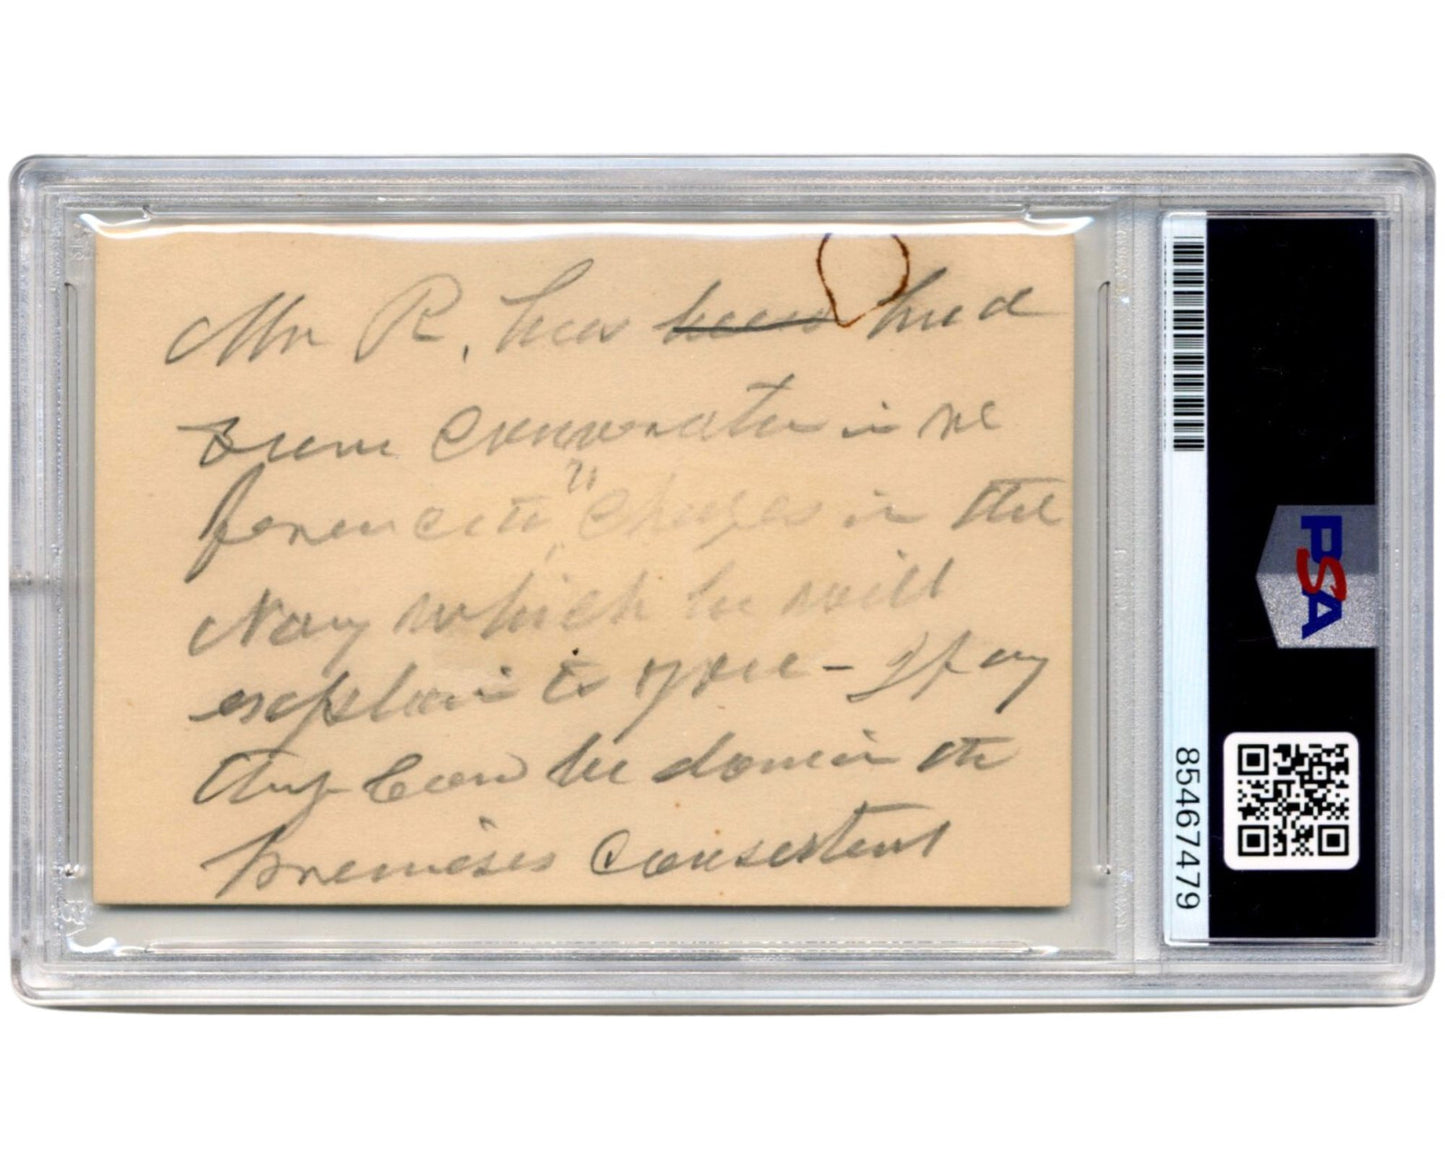 Mr R. has ~~been~~ had
some conversation in re
ference to "Changes in the
Navy" which he will
explain to you - If any
thing can be done in the
premises consistent
PSA
85467479